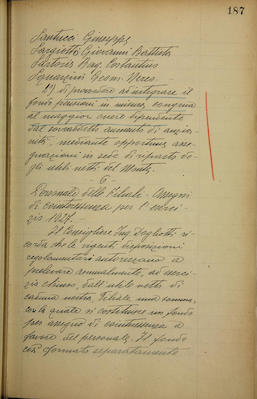 187
Santucci Giuseppe
Sargiotti Giovanni Battista
Sartoris Rag. Costantino
Signorini Geom. Nereo.
di provvedere ad integrare il
fondo pensioni in misura congrua
al maggior onere dipendente
dal concedibile aumento di anzia-
nità, mediante opportune asse-
gnazioni in sede di riparto de-
gli utili netti del Monte.
- 6 -
Personale delle Filiali - Assegni
di cointeressenza per l'eserci-
zio 1927. -
Il Consigliere Ing. Dogliotti ri-
corda che le vigenti disposizioni
regolamentari autorizzano a
prelevare annualmente, ad eserci-
zio chiuso, dall'utile netto di
ciascuna nostra Filiale una somma,
con la quale si costituisce un fondo
per assegno di cointeressenza a
favore del personale. Il fondo
così formato separatamente